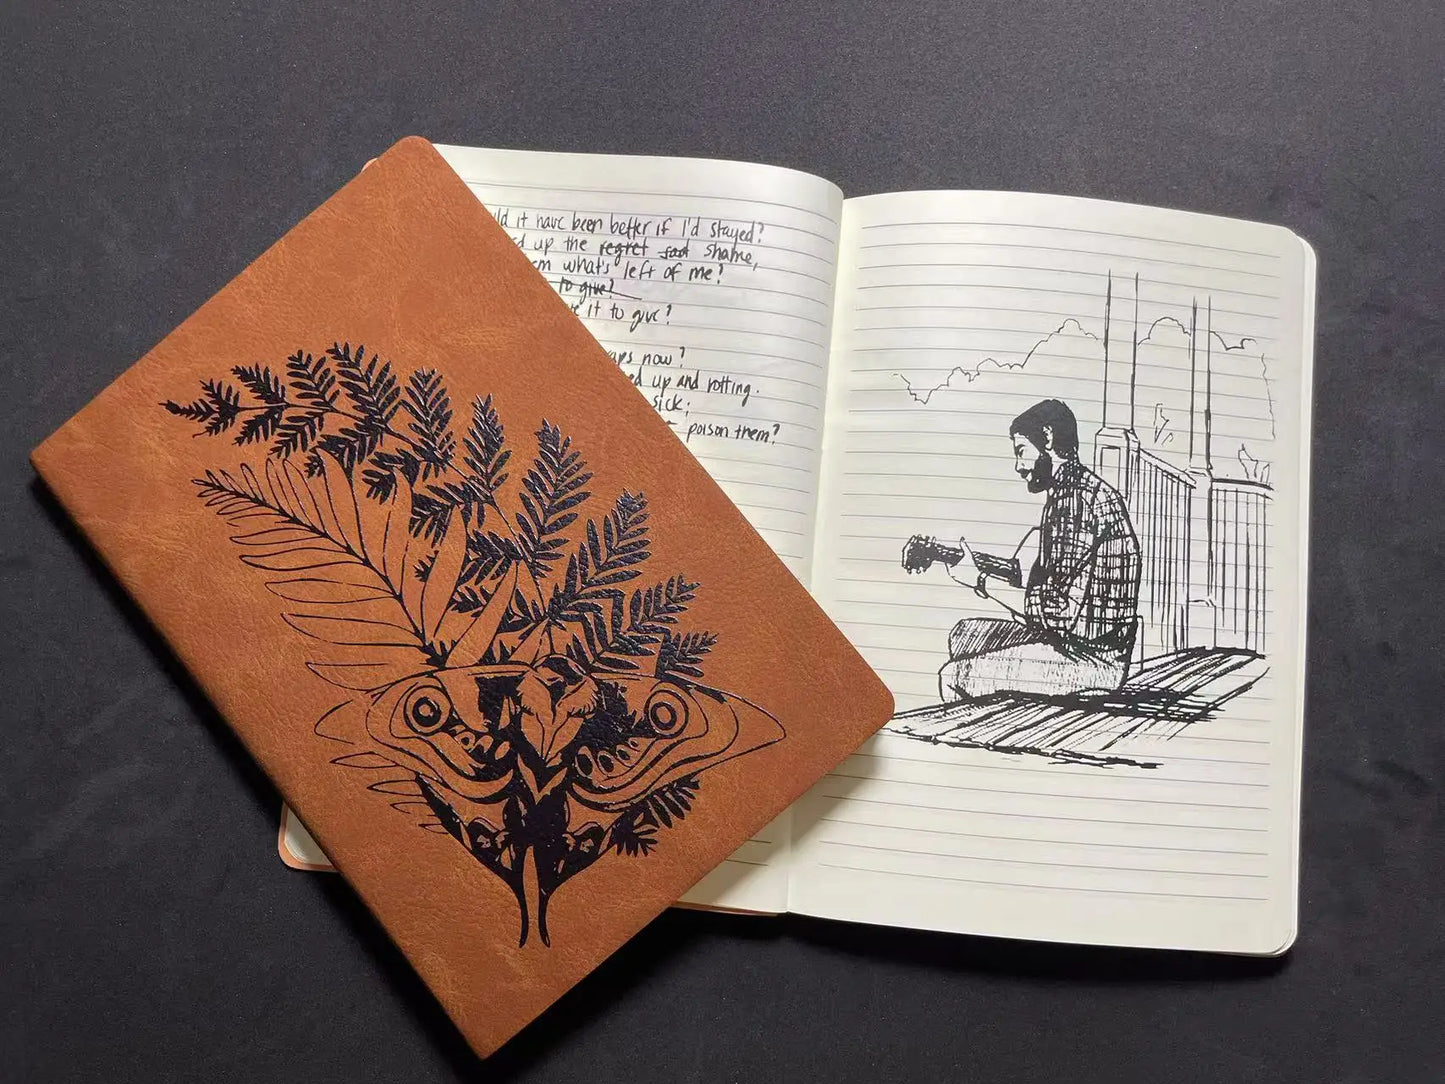 it have been better if I'd stayed?
up the regret sad shame,
what's left of me?
to give?
it to give?
now?
up and rotting.
sick;
poison them?